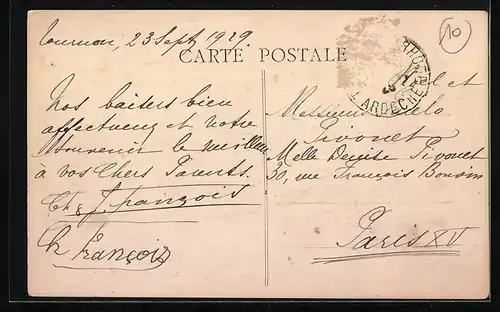 Tournon, 23 Sept 1929.
CARTE POSTALE
Nos baisers bien
affectueux et notre
souvenir le meilleur
à vos Chers Parents.
Ch & J. François
Ch François
et
Messieurs
Pivonet
Melle Denise Pivonet
30, rue François Bonvin
Paris XV
ARDECHE
10